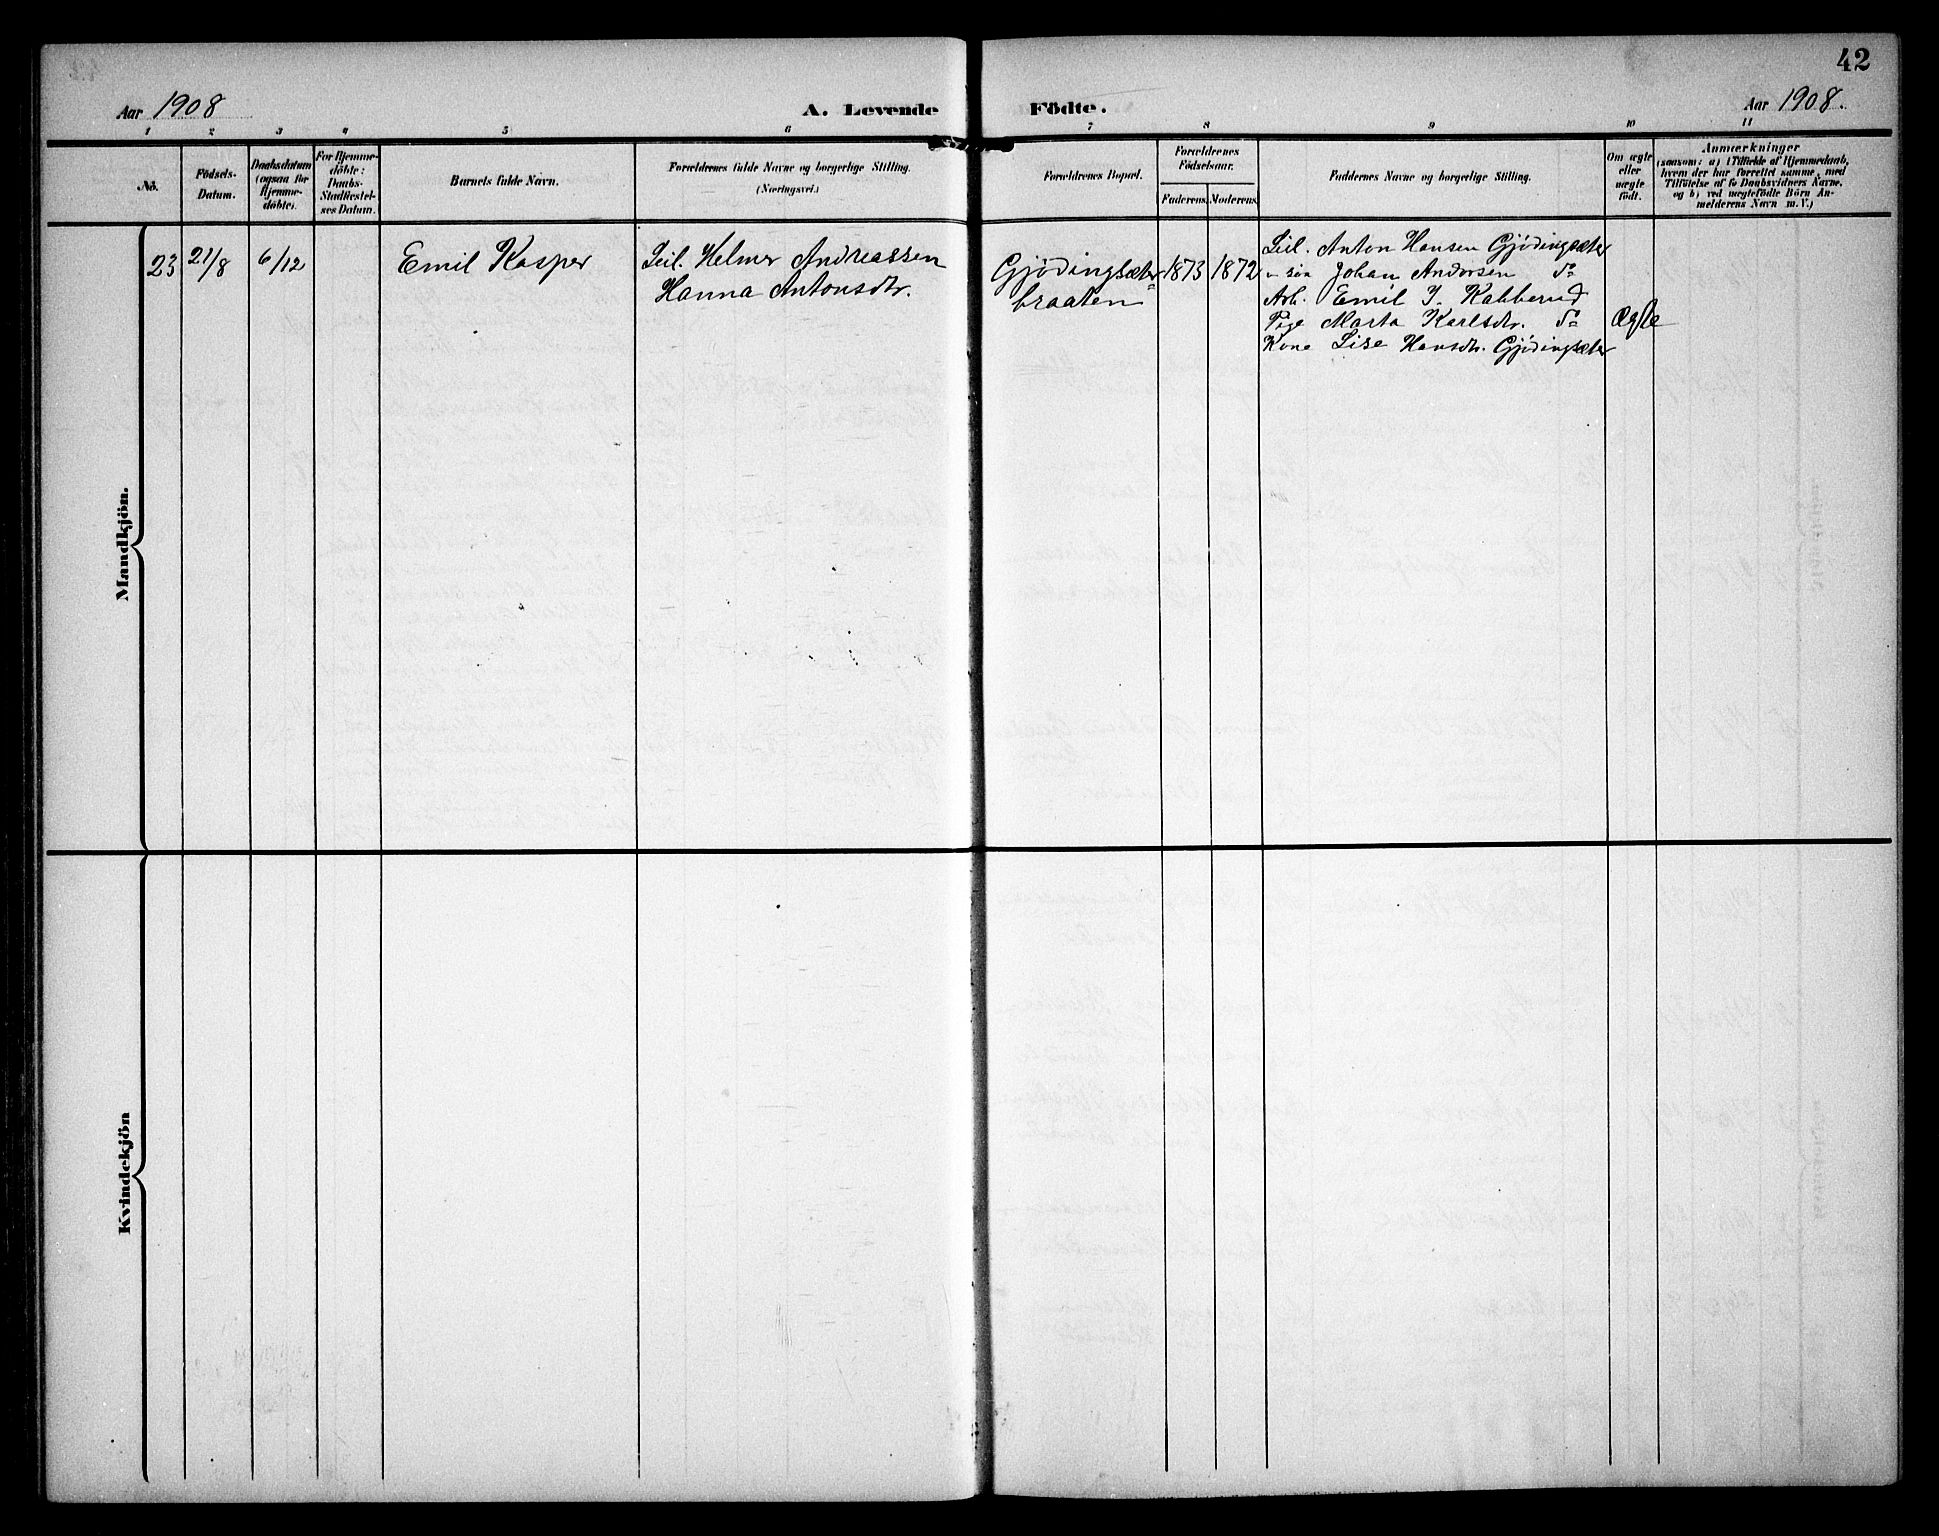 42
Aar 1908
A. Levende Födte.
Aar 1908.
1 2 3 4 5 6 7 8 9 10 11
No.
Födsels-
Datum.
Daabsdatum
(ogsaa for
Hjemme-
döbte).
For Hjemme-
döbte:
Daabs-
Stadfæstel-
ses Datum.
Barnets fulde Navn.
Forældrenes fulde Navne og borgerlige Stilling.
(Næringsvei.)
Forældrenes Bopæl.
Forældrenes
Födselsaar.
Faderens. Moderens.
Faddernes Navne og borgerlige Stilling.
Om ægte
eller
uægte
födt.
Anmærkninger
(saasom: a) i Tilfælde af Hjemmedaab,
hvem der har forrettet samme, med
Tilföielse af to Daabsvidners Navne,
og b) ved uægtefödte Börn An-
melderens Navn m. V.)
Mandkjön.
23
21/8
6/12
Emil Kasper
Leil. Helmer Andreassen
Hanna Antonsdtr.
Gjödingsæter-
braaten
1873
1872
Leil. Anton Hansen Gjödingsæter
" søn Johan Andorsen do
Arb. Emil J. Kabberud
Pige Marta Karlsdtr. do
Kone Lise Hansdtr. Gjödingsæter
Ægte
Kvindekjön